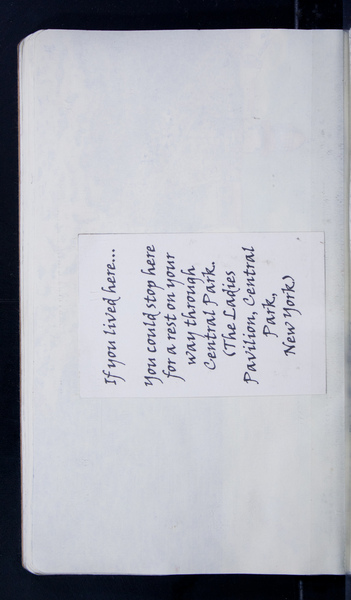 If you lived here...
You could stop here
for a rest on your
way through
Central Park.
(The Ladies
Pavilion, Central
Park,
New York)